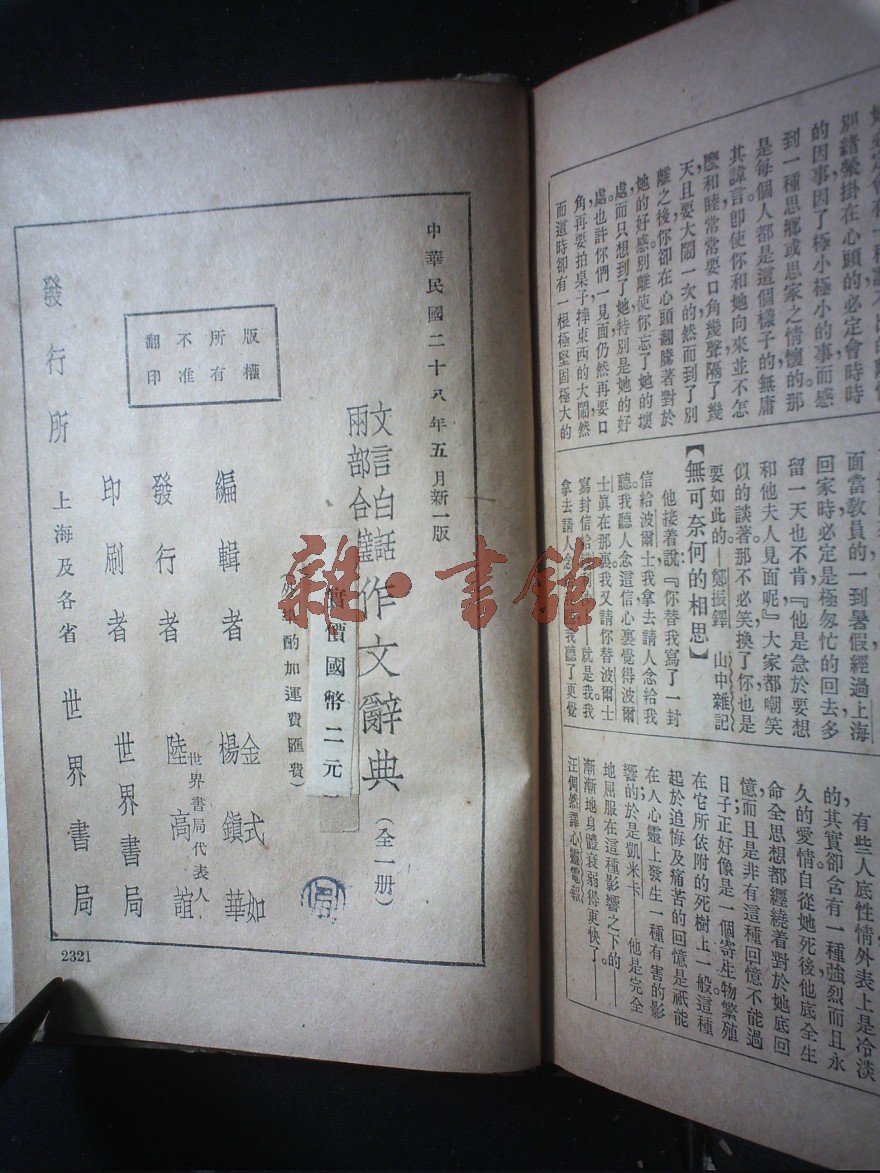 面當教員的一到暑假經過上海
回家時必定是極匆忙的回去多
留一天也不肯『他是急於要想
和他夫人見面呢』大家都嘲笑
似的談著那不必笑換了你也是
要如此的—鄭振鐸 山中雜記
別緒縈掛在心頭的必定會時時
的因事因了極小極小的事而感
到一種思鄉或思家之情懷的那
是每個人都是這個樣子的無庸
其諱言即使你和她向來並不怎
麼和睦常常要口角幾聲隔了幾
天且要大鬧一次的然而到了別
離之後你卻在心頭翻騰著對於
她的好感別離使你忘了她的壞
處而只想到了她特別是她的好
處也許你們一見面仍然再要口
角再要拍桌子摔東西的大鬧然
而這時卻有一根極堅固極大的
【無可奈何的相思】
他接着說『你替我寫了一封
信給波爾士我拿去請人念給我
聽我聽人念這信心裏覺得波爾
士真在那裏我又請你替波爾士
寫封信給
就是我我
拿去請人念
我聽了更覺
有些人底性情外表上是冷淡
的其實卻含有一種強烈而且永
久的愛情自從她死後他底全生
命全思想都纏繞着對於她底回
憶而且是非有這種回憶不能過
日子正好像是一個寄生物繁殖
在它所依附的死樹上一般這種
起於追悔及痛苦的回憶是祇能
在人心靈上發生一種有害的影
響的於是凱米卡——他是完全
地屈服在這種影響之下的——
漸漸地身體衰弱得更快了。
汪倜然譯心靈電報
中華民國二十八年五月新一版
文言白話
兩部合璧
作文辭典（全一册）
實價國幣二元
外埠酌加運費匯費）
版權所有
不准翻印
編輯者 金式如 楊鎮華
發行者 世界書局代表人 陸高誼
印刷者 世界書局
發行所 上海及各省 世界書局
2321
雜·書館